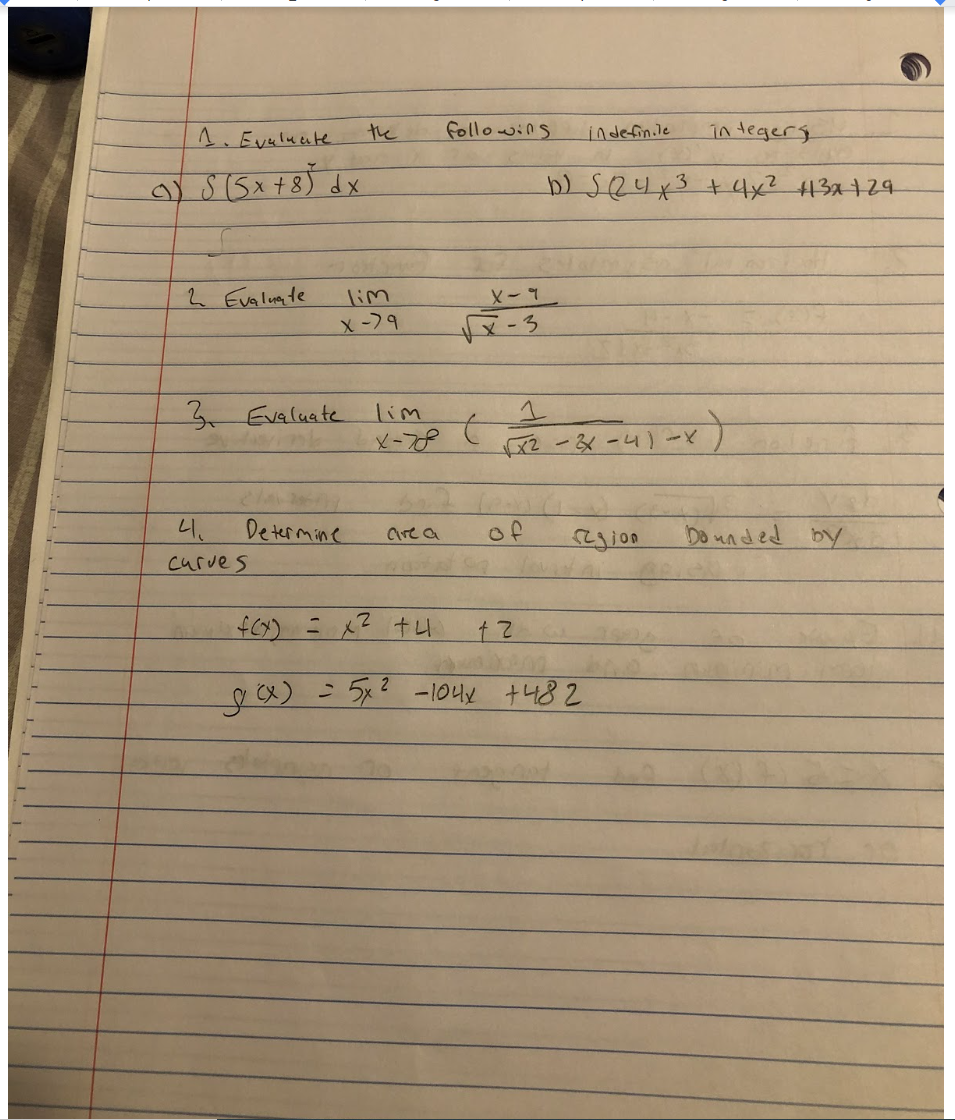 1. Evaluate the following indefinite integers
a) ∫(5x+8) dx b) ∫(24x³ + 4x² +13x+29
2. Evaluate lim x->9 x-9 / √x - 3
3. Evaluate lim x->∞ ( 1 / √x2 - 3x - 4) - x )
4. Determine area of region bounded by
curves
f(x) = x² +4 +2
g(x) = 5x² -104x +482